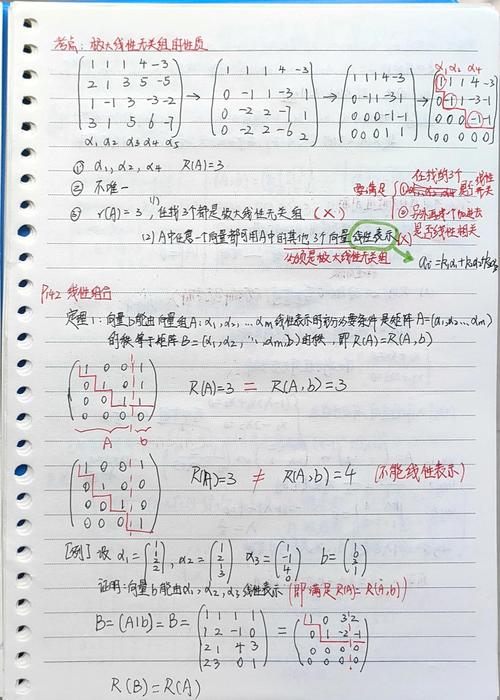 考点：极大线性无关组的性质
1 1 1 4 -3
2 1 3 5 -5
1 -1 3 -3 -2
3 1 5 6 -7
α₁ α₂ α₃ α₄ α₅
→
1 1 1 4 -3
0 -1 1 -3 1
0 -2 2 -7 1
0 -2 2 -6 2
→
1 1 1 4 -3
0 -1 1 -3 1
0 0 0 -1 -1
0 0 0 1 1
→
α₁ α₂ α₄
1 1 1 4 -3
0 -1 1 -3 -1
0 0 0 -1 -1
0 0 0 0 0
① α₁, α₂, α₄ R(A)=3
② 不唯一
③ r(A)=3, (1) 任找3个都是极大线性无关组 (×)
(2) A中任意一个向量都可用A中的其他3个向量线性表示 (×)
必须是极大线性无关组
要满足
① 在找的3个是否线性无关
② 另外再拿一个加进去是否线性相关
P142 线性组合
定理1：向量b能由向量组A：α₁, α₂, … αm线性表示的充分必要条件是矩阵A=(α₁, α₂ … αm)
的秩等于矩阵B=(α₁, α₂, …, αm, b)的秩，即R(A)=R(A,b)
1 0 0 1
0 1 0 1
0 0 1 1
0 0 0 0
A b
R(A)=3 = R(A,b)=3
1 0 0 1
0 1 0 0
0 0 1 0
0 0 0 1
R(A)=3 ≠ R(A,b)=4 (不能线性表示)
[例] 设 α₁=(1 1 2 2), α₂=(1 2 1 3) α₃=(1 -1 4 0) b=(1 0 3 1)
证明：向量b能由α₁, α₂, α₃线性表示 (即满足R(A)=R(A,b))
B=(A|b)=B=
1 1 1 1
1 2 -1 0
2 1 4 3
2 3 0 1
=
1 0 3 2
0 1 -2 -1
0 0 0 0
0 0 0 0
R(B)=R(A)